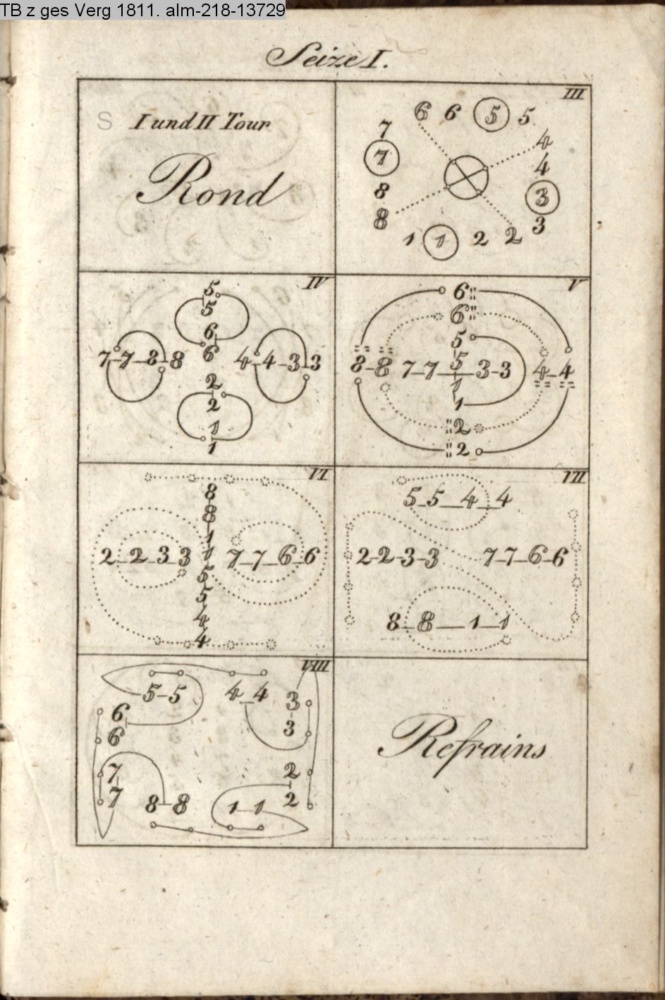 TB z ges Verg 1811. alm-218-13729
Seize I.
S
I und II Tour
Rond
III
6 6 5 5
7 4
7 4
8 3
8 3
1 1 2 2
IV
5
5
6
6
7-7-8-8 4-4-3-3
2
2
1
1
V
6
6
5
8-8 7-7 5 3-3 4-4
1
1
2
2
VI
8
8
1
2-2-3-3 1 7-7-6-6
5
5
4
4
VII
5-5-4-4
2-2-3-3 7-7-6-6
8-8-1-1
VIII
5-5 4-4
6 3
6 3
7 2
7 2
8-8 1-1
Refrains